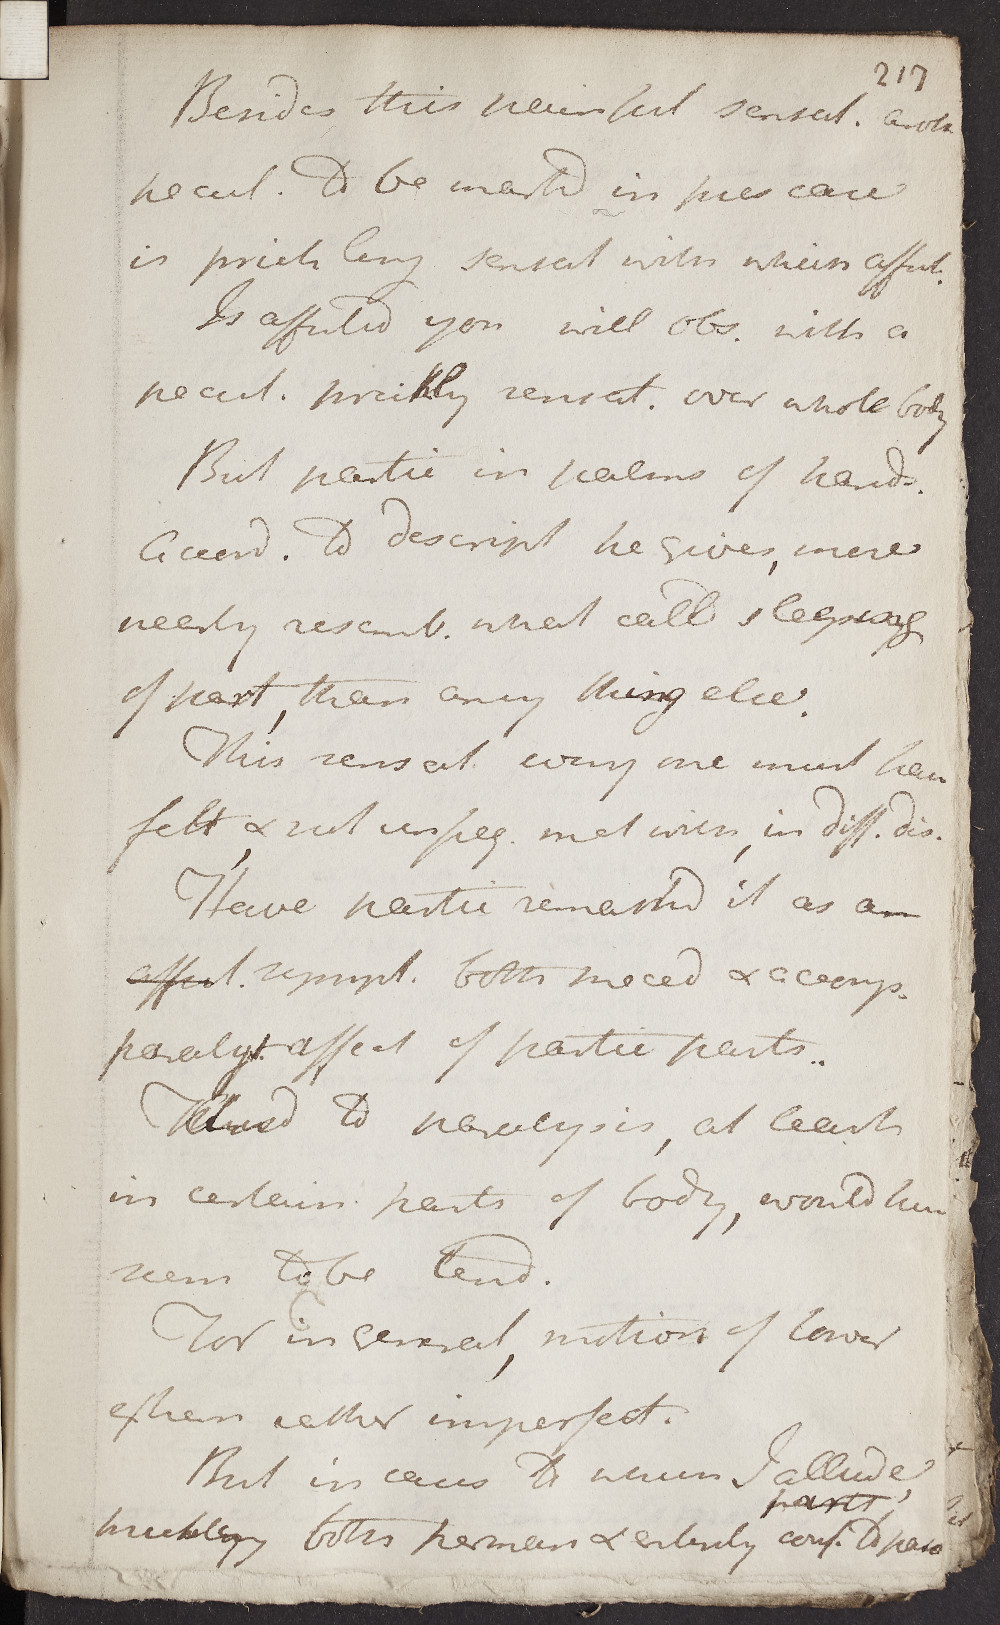 217
Besides this painful sensat. anoth
pecul. to be mark'd in pres case
is prickling sensat with which affect.
Is affected you will obs. with a
pecul. prickly sensat. over whole body
But partic in palms of hands.
Accord. to descript he gives, more
nearly resemb. what call'd sleeping
of part, than any thing else.
This sensat every one must have
felt, & not unfreq. met with, in diff. dis.
Have partic remark'd it as an
affect. sympt. both preced & accomp.
paralyt affect of partic parts.
to paralysis, at least
in certain parts of body, would here
seem to be tend.
For in general, motion of lower
extrem rather imperfect.
But in cases to which I allude,
parts
prickling both perman & entirely conf. to